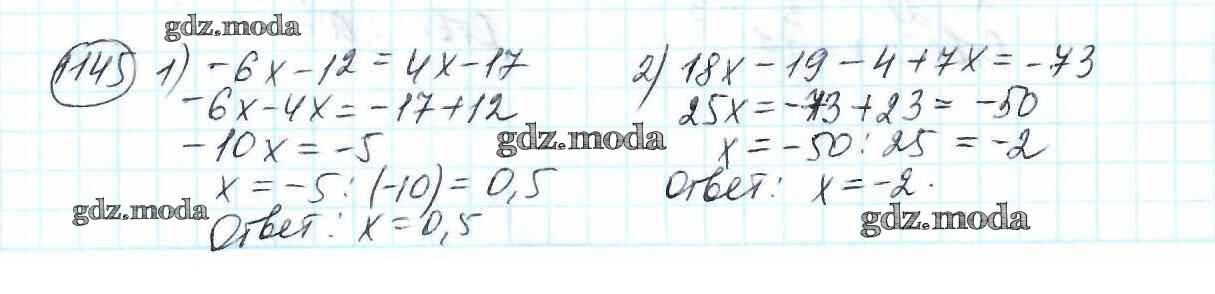 gdz.moda
1145 1) -6x-12=4x-17
-6x-4x=-17+12
-10x=-5
x=-5:(-10)=0,5
Ответ: x=0,5
2) 18x-19-4+7x=-73
25x=-73+23=-50
x=-50:25=-2
Ответ: x=-2.
gdz.moda
gdz.moda
gdz.moda